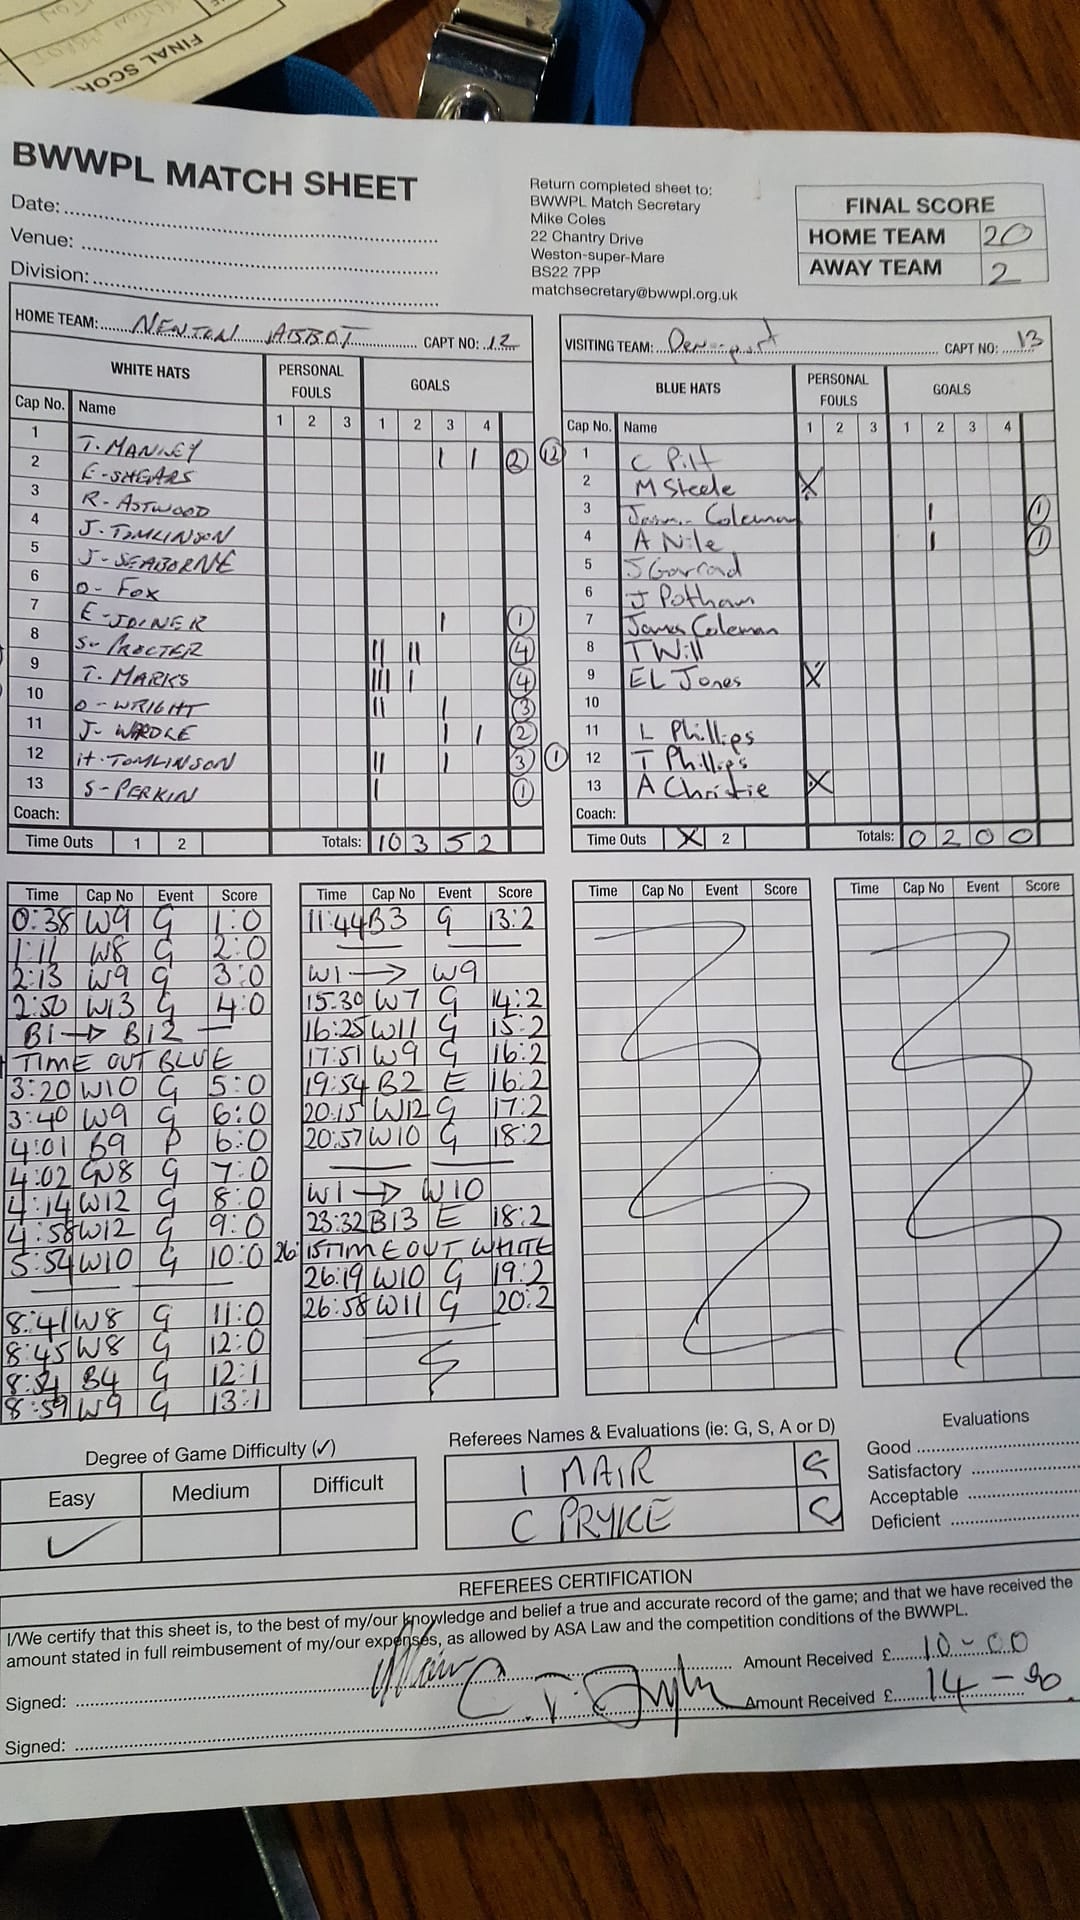 FINAL SCOR
BWWPL MATCH SHEET
Date:
Venue:
Division:
Return completed sheet to:
BWWPL Match Secretary
Mike Coles
22 Chantry Drive
Weston-super-Mare
BS22 7PP
matchsecretary@bwwpl.org.uk
FINAL SCORE
HOME TEAM 20
AWAY TEAM 2
HOME TEAM: NEWTON ABBOT CAPT NO: 12
WHITE HATS PERSONAL FOULS GOALS
Cap No. Name 1 2 3 1 2 3 4
1 T. MANLEY | | 2
2 E-SHEARS
3 R-ASTWOOD
4 J-TOMLINSON
5 J-SEABORNE
6 O-FOX
7 E-JOINER | 1
8 S-PROCTER || || 4
9 T. MARKS ||| | 4
10 O-WRIGHT || | 3
11 J-WARDLE | | 2
12 H-TOMLINSON || | 3
13 S-PERKIN | 1
Coach:
Time Outs 1 2 Totals: 10 3 5 2
VISITING TEAM: CAPT NO: 13
BLUE HATS PERSONAL FOULS GOALS
Cap No. Name 1 2 3 1 2 3 4
12 1 C Pitt
2 M Steele X
3 Coleman | 1
4 A Nile | 1
5 J Garrad
6 J Potham
7 James Coleman
8 T Will
9 EL Jones X
10
11 L Phillips
1 12 T Phillips
13 A Christie X
Coach:
Time Outs X 2 Totals: 0 2 0 0
Time Cap No Event Score
0:38 W9 G 1:0
1:11 W8 G 2:0
2:13 W9 G 3:0
2:50 W13 G 4:0
B1 → B12 —
TIME OUT BLUE
3:20 W10 G 5:0
3:40 W9 G 6:0
4:01 B9 P 6:0
4:02 W8 G 7:0
4:14 W12 G 8:0
4:58 W12 G 9:0
5:54 W10 G 10:0
8:41 W8 G 11:0
8:45 W8 G 12:0
8:54 B4 G 12:1
8:59 W9 G 13:1
Time Cap No Event Score
11:44 B3 G 13:2
W1 → W9
15:30 W7 G 14:2
16:25 W11 G 15:2
17:51 W9 G 16:2
19:54 B2 E 16:2
20:15 W12 G 17:2
20:57 W10 G 18:2
W1 → W10
23:32 B13 E 18:2
26:15 TIME OUT WHITE
26:19 W10 G 19:2
26:58 W11 G 20:2
Time Cap No Event Score
Time Cap No Event Score
Degree of Game Difficulty (✓)
Easy Medium Difficult
✓
Referees Names & Evaluations (ie: G, S, A or D)
I MAIR G
C PRYKE G
Evaluations
Good
Satisfactory
Acceptable
Deficient
REFEREES CERTIFICATION
I/We certify that this sheet is, to the best of my/our knowledge and belief a true and accurate record of the game; and that we have received the
amount stated in full reimbusement of my/our expenses, as allowed by ASA Law and the competition conditions of the BWWPL.
Signed: Amount Received £ 10-00
Signed: Amount Received £ 14-90